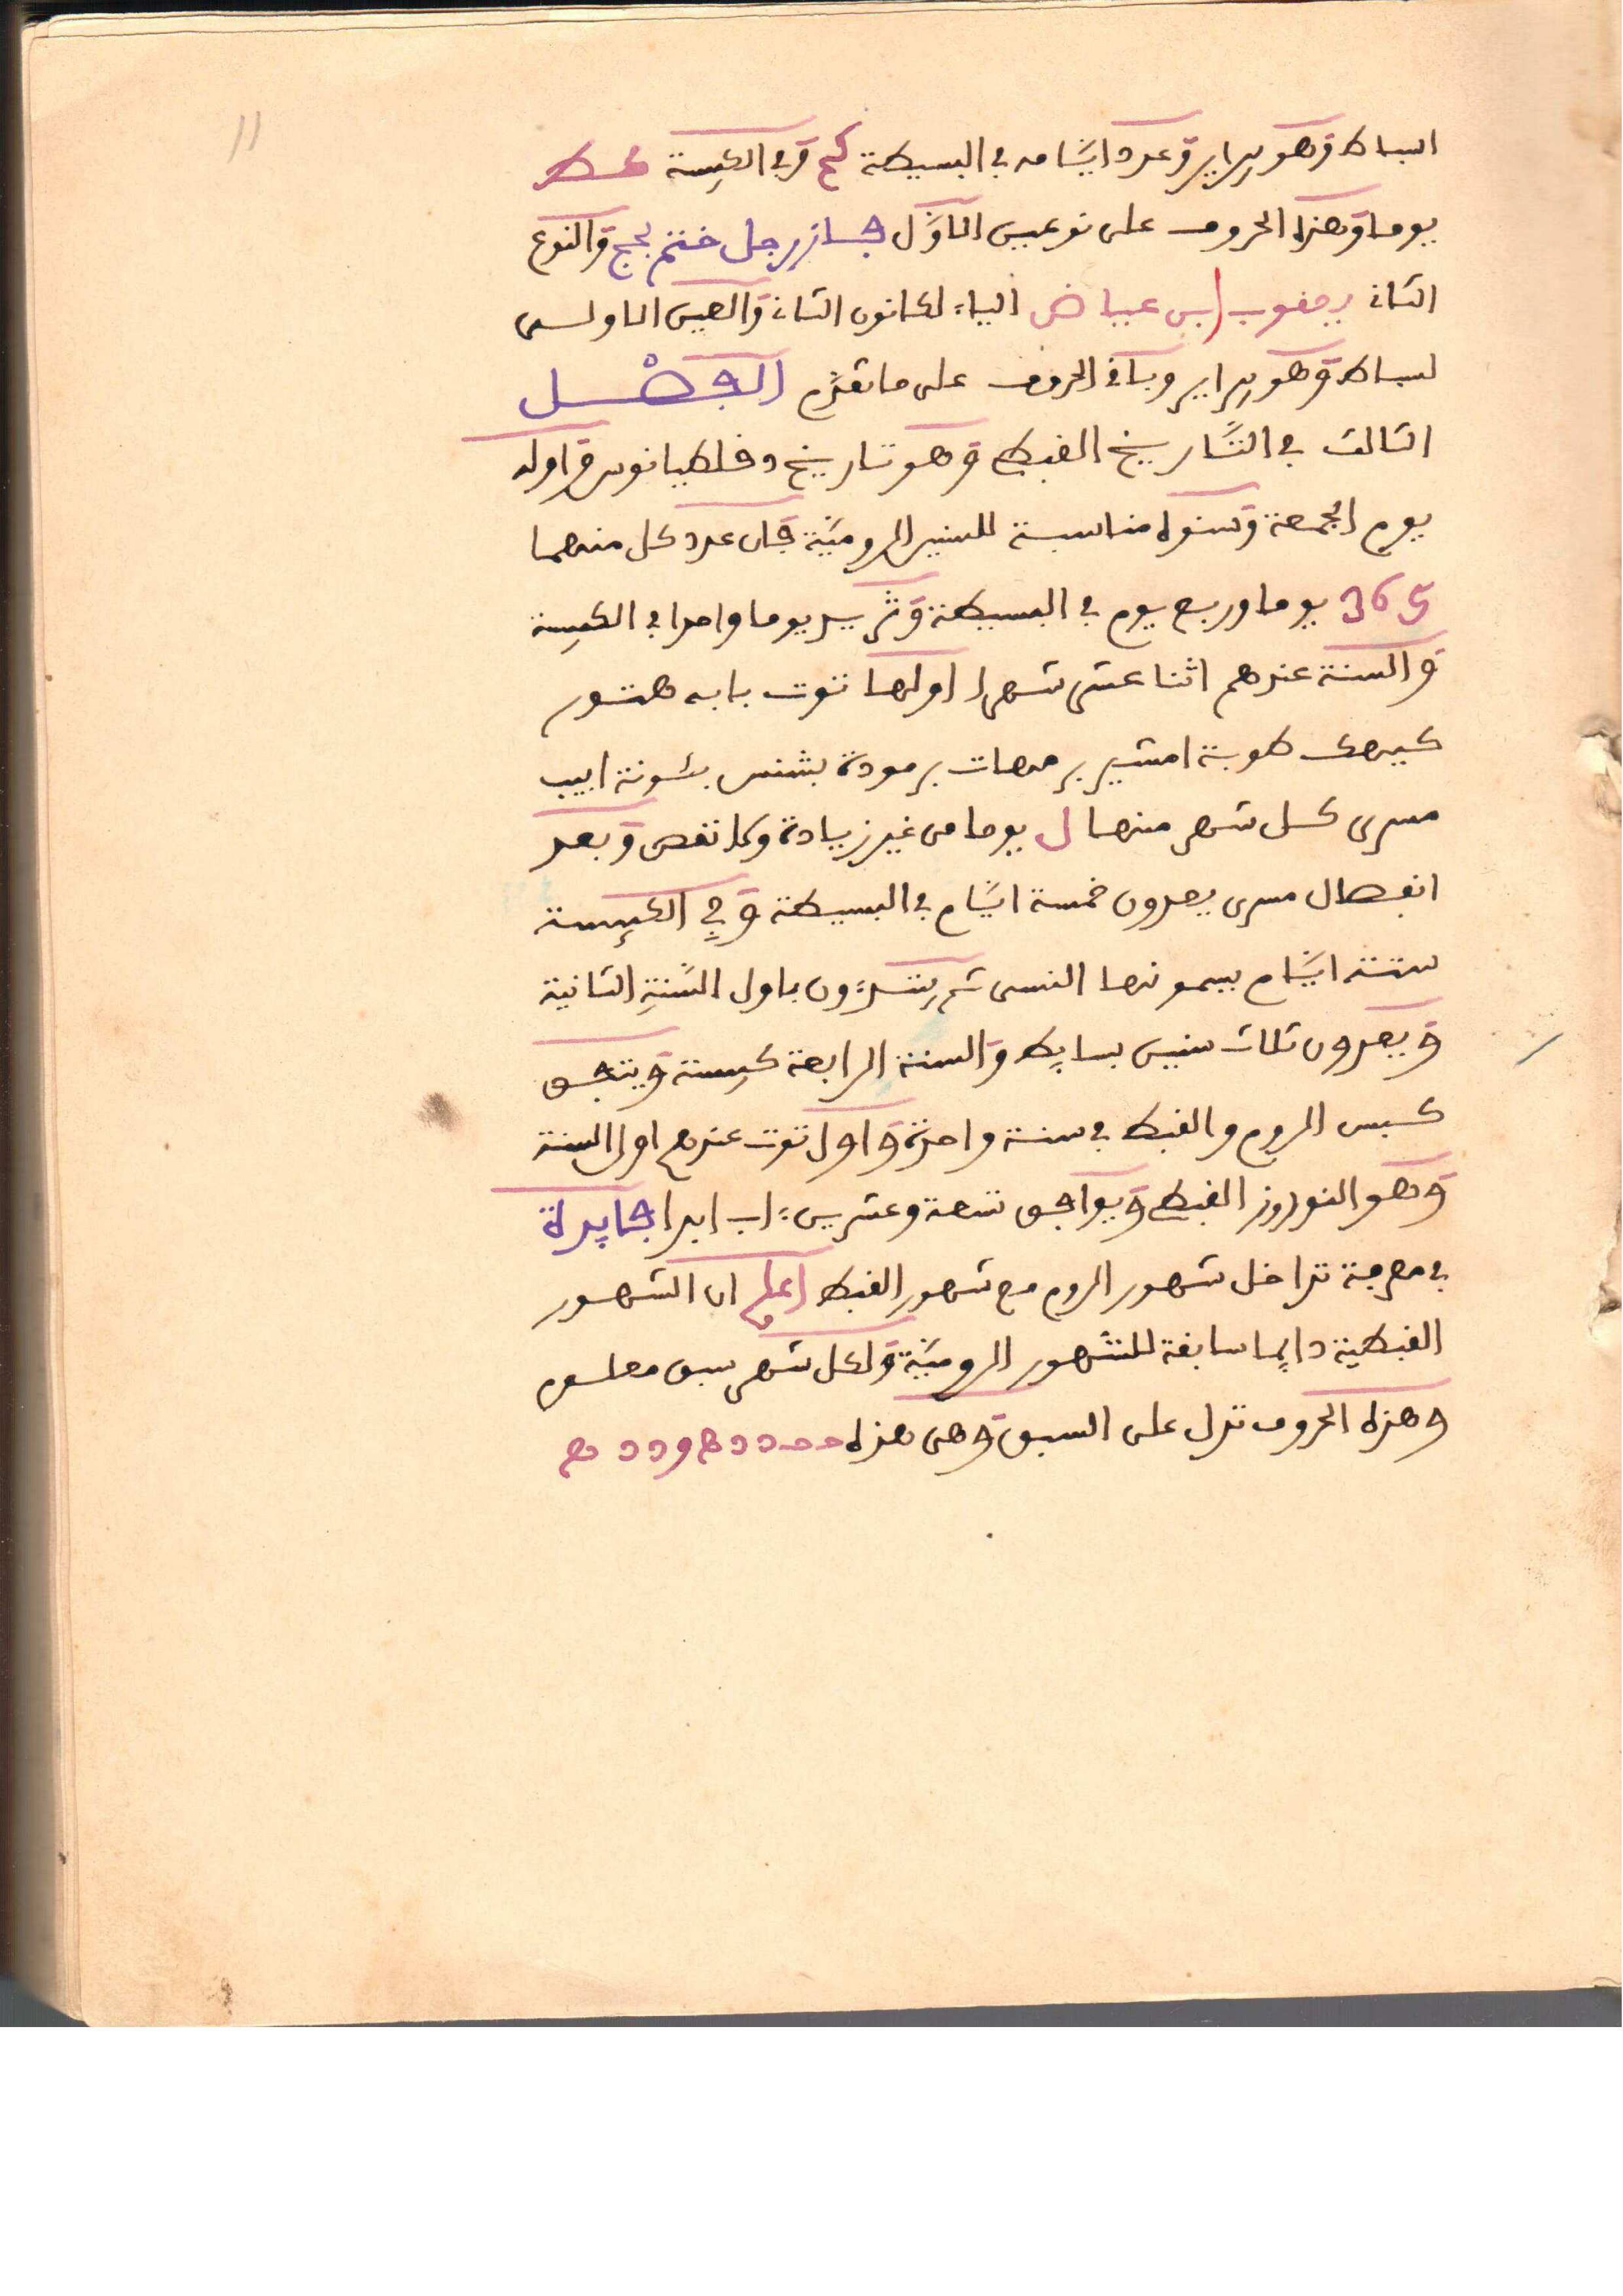 11
اسباط وهو يبراير وعدد ايامه في البسيطة كح وفي الكبسة كط
يوما وهذه الحروف على نوعين الاول فساز رجل ختم بحج والنوع
الثان يعقوب ابن عياض الياء لكانون الثان والعين الاولى
لسباط وهو يبراير وباقي الحروف على ما تقدم الفصل
الثالث في التاريخ القبطي وهو تاريخ دقلطيانوس واوله
يوم الجمعة وسنوه مناسبة للسنين الرومية فان عدد كل منهما
365 يوما وربع يوم في البسيطة وتزيد يوما واحدا في الكبسة
والسنة عندهم اثنا عشر شهرا اولها توت بابه هتور
كيهك طوبة امشير برمهات برمودة بشنس بئونة ابيب
مسرى كل شهر منها ل يوما من غير زيادة ولا نقص وبعد
انفصال مسرى يعدون خمسة ايام في البسيطة وفي الكبيسة
ستة ايام يسمونها النسى ثم يبتدءون باول السنة الثانية
ويعدون ثلاث سنين بسايط والسنة الرابعة كبسة ويتفق
كبس الروم والقبط في سنة واحدة واول توت عندهم اول السنة
وهو النوروز القبطي ويوافق تسعة وعشرين اب ابدا فايدة
في معرفة تداخل شهور الروم مع شهور القبط اعلم ان الشهور
القبطية دايما سابقة للشهور الرومية ولكل شهر سبق معلوم
وهذه الحروف تدل على السبق وهي هذه